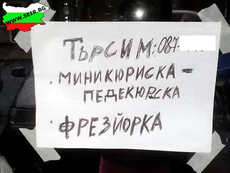 www.sblb.bg
ТЪРСИМ: 087
· МИНИКЮРИСКА -
ПЕДЕКЮРСКА
· ФРЕЗЙОРКА